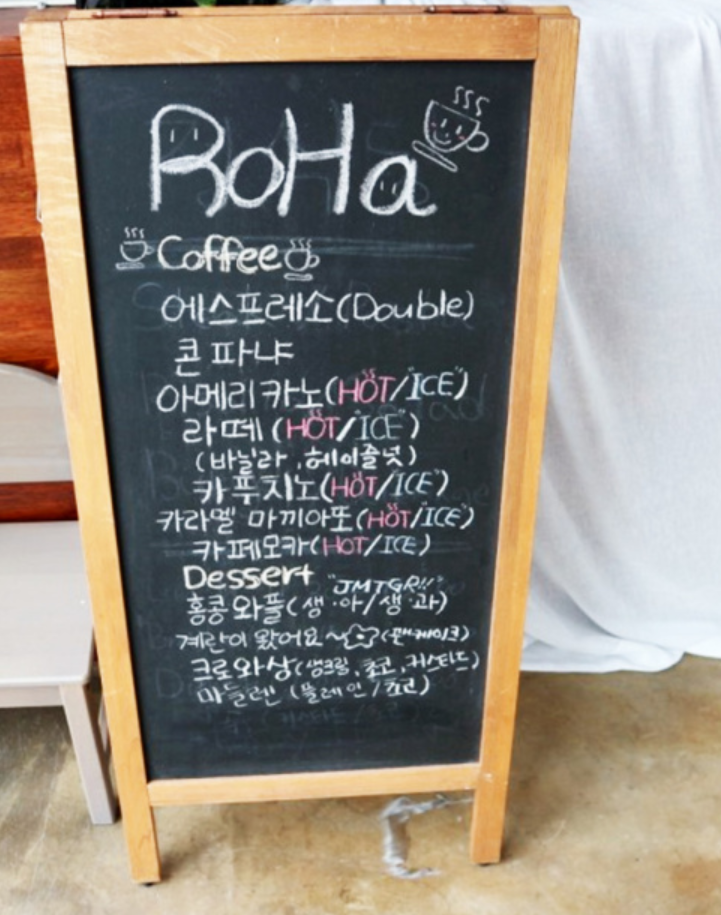 RoHa
Coffee
에스프레소(Double)
콘파냐
아메리카노(HOT/"ICE")
라떼 (HOT/"ICE")
(바닐라, 헤이즐넛)
카푸치노(HOT/"ICE")
카라멜 마끼아또(HOT/"ICE")
카페모카(HOT/ICE)
Dessert "JMTGR!!"
홍콩와플(생·아/생·과)
계란이 왔어요~(팬케이크)
크로와상(생크림, 초코, 커스타드)
마들렌 (플레인/초코)